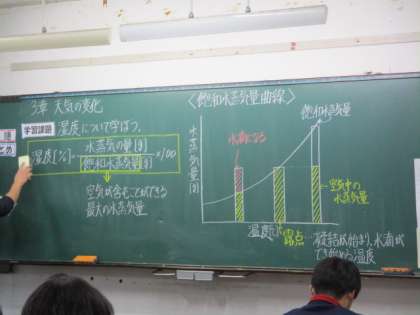 3章 天気の変化
学習課題 湿度について学ぼう。
湿度[%]=水蒸気の量[g]
飽和水蒸気量[g]
×100
空気が含むことができる
最大の水蒸気量
〈飽和水蒸気量曲線〉
飽和水蒸気量
水蒸気量[g]
水滴になる
空気中の
水蒸気量
温度℃
露点…凝結が始まり、水滴が
でき始める温度